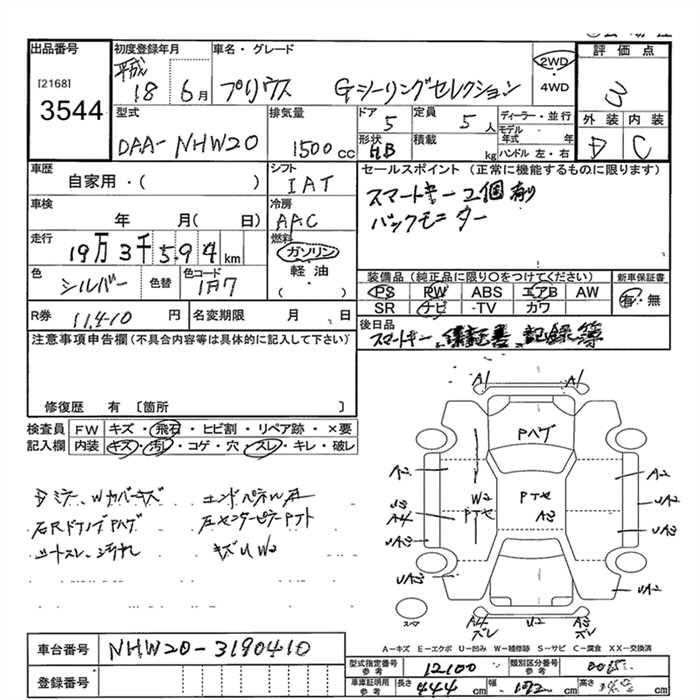 出品番号 初度登録年月 車名・グレード 評価点
[2168] 平成 2WD・4WD
3544 18 6月 プリウス Gツーリングセレクション 3
型式 排気量 ドア 定員 ディーラー・並行 外装 内装
5 5人 モデル年式 年
DAA-NHW20 1500cc 形状 HB 積載 kg ハンドル 左・右 D C
車歴 シフト セールスポイント(正常に機能するものに限ります)
自家用・( ) IAT スマートキー2個有り
車検 冷房 バックモニター
年 月( 日) AAC
走行 燃料
19万3千594km ガソリン
色 色替 色コード 軽油 装備品(純正品に限り○をつけてください) 新車保証書
シルバー 1F7 ( ・ ) PS PW ABS エアB AW 有・無
SR ナビ TV カワ
R券 11,410円 名変期限 月 日 後日品
注意事項申告欄(不具合内容等は具体的に記入して下さい) スマートキー 保証書 記録簿
修復歴 有 〔箇所 〕
検査員 FW キズ・飛石・ヒビ割・リペア跡・×要
記入欄 内装 キズ・汚レ・コゲ・穴・スレ・キレ・破レ
A1 A1
Pハゲ
A2 W2 Pキセ A2
A4 Pキセ A3 UA2
UA3 UA3
UA3 UA2
スペア A4 U2 A3
Dミラー、Wカバーキズ エンドパネル
右Rドアノブ Pハゲ 左センターピラー
シートスレ、汚れ キズU W2
A−キズ E−エクボ U−凹み W−補修跡 S−サビ C−腐食 XX−交換済
車台番号 NHW20-3190410
登録番号
型式指定番号 参考 12100 類別区分番号 参考
車庫証明用 参考 長さ 444cm 幅 172cm 高さ cm